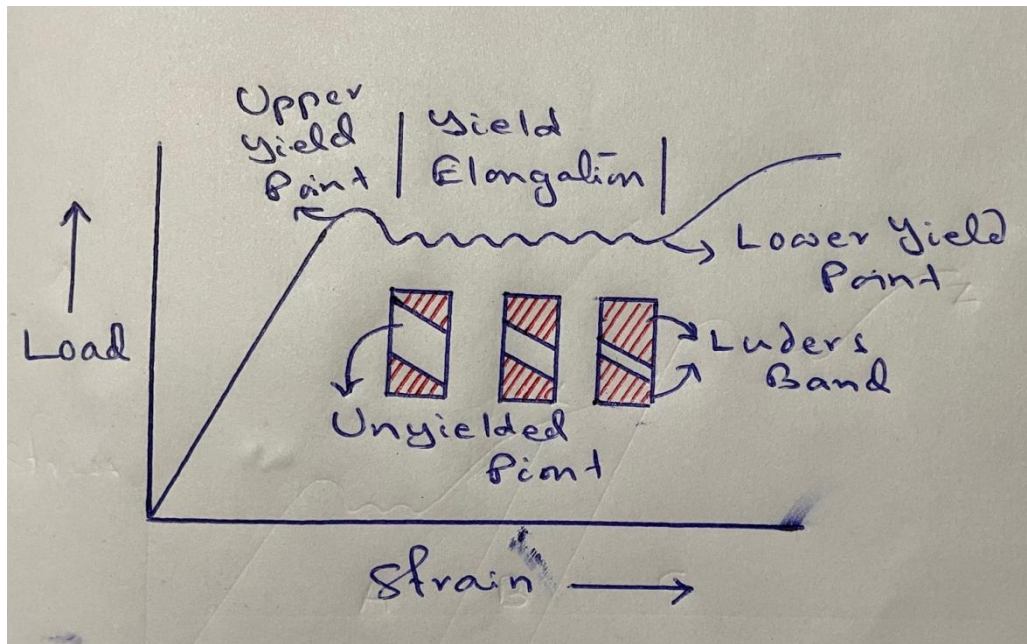 Upper
Yield
Point
Yield
Elongation
Lower Yield
Point
Load
Luders
Band
Unyielded
Piont
Strain